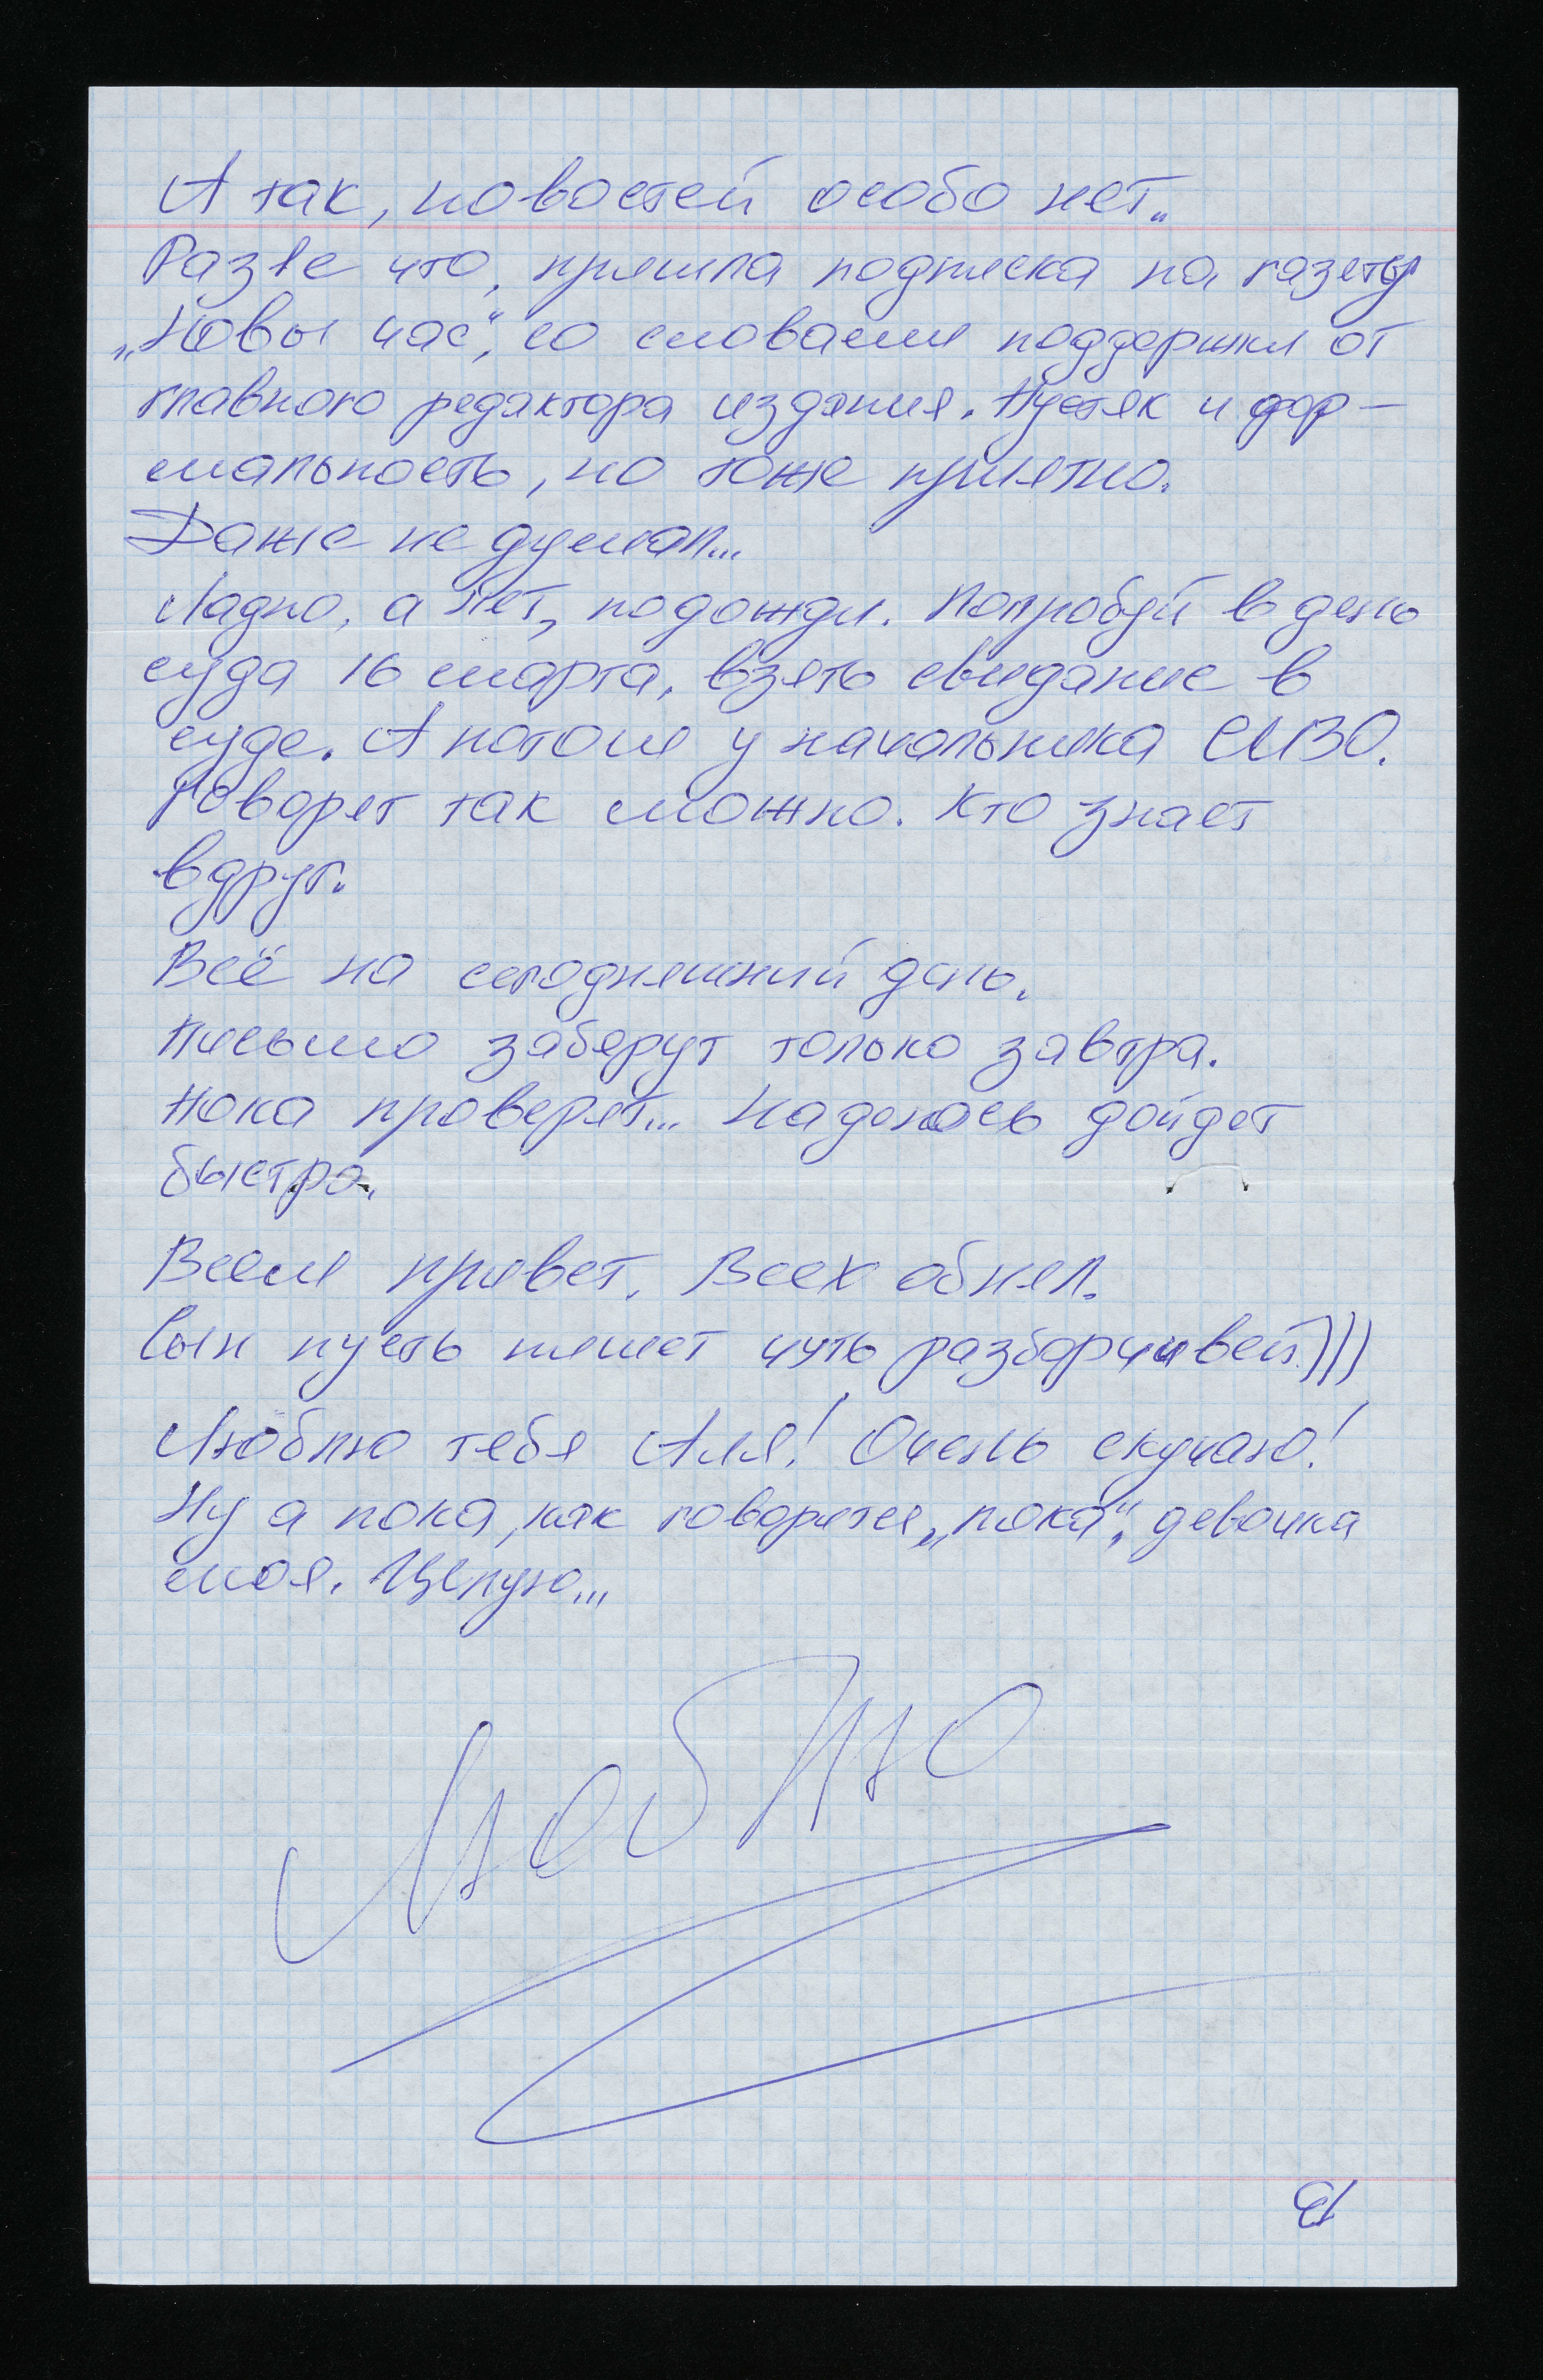 А так, новостей особо нет..
Разве что, пришла подписка на газету
„Новы час“, со словами поддержки от
главного редактора издания. Пустяк и фор-
мальность, но тоже приятно.
Даже не думал...
Ладно, а нет, подожди. Попробуй в день
суда 16 марта, взять свидание в
суде. А потом у начальника СИЗО.
Говорят так можно. Кто знает
вдруг.
Всё на сегодняшний день.
Письмо заберут только завтра.
Пока проверят... Надеюсь дойдет
быстро.
Всем привет. Всех обнял.
Сын пусть пишет чуть разборчивей)))
Люблю тебя Аля! Очень скучаю!
Ну а пока, как говорится „пока“, девочка
моя. Целую...
Люблю